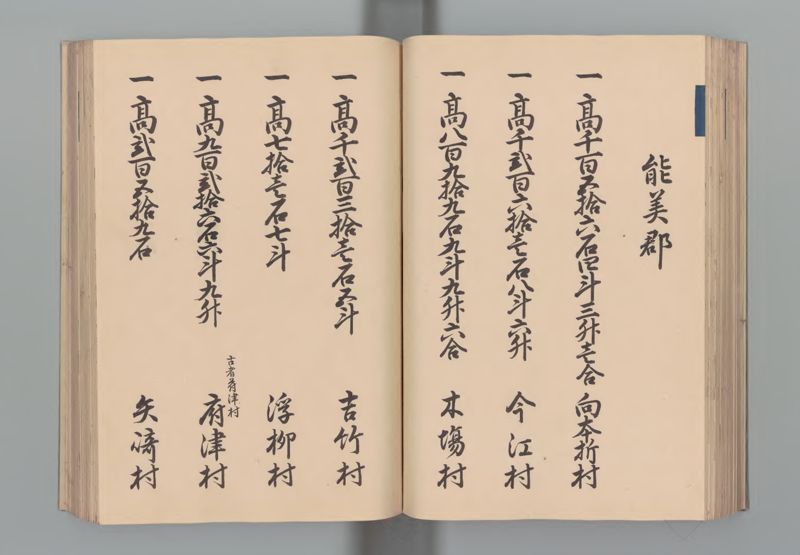 能美郡
一 高千百五拾六石四斗三升壱合 向本折村
一 高千弐百六拾壱石八斗六升 今江村
一 高八百九拾九石九斗九升六合 木場村
一 高千弐百三拾壱石五斗 吉竹村
一 高七拾壱石七斗 浮柳村
古者
津村
一 高九百弐拾六石六斗九升 府津村
一 高弐百五拾九石 矢崎村